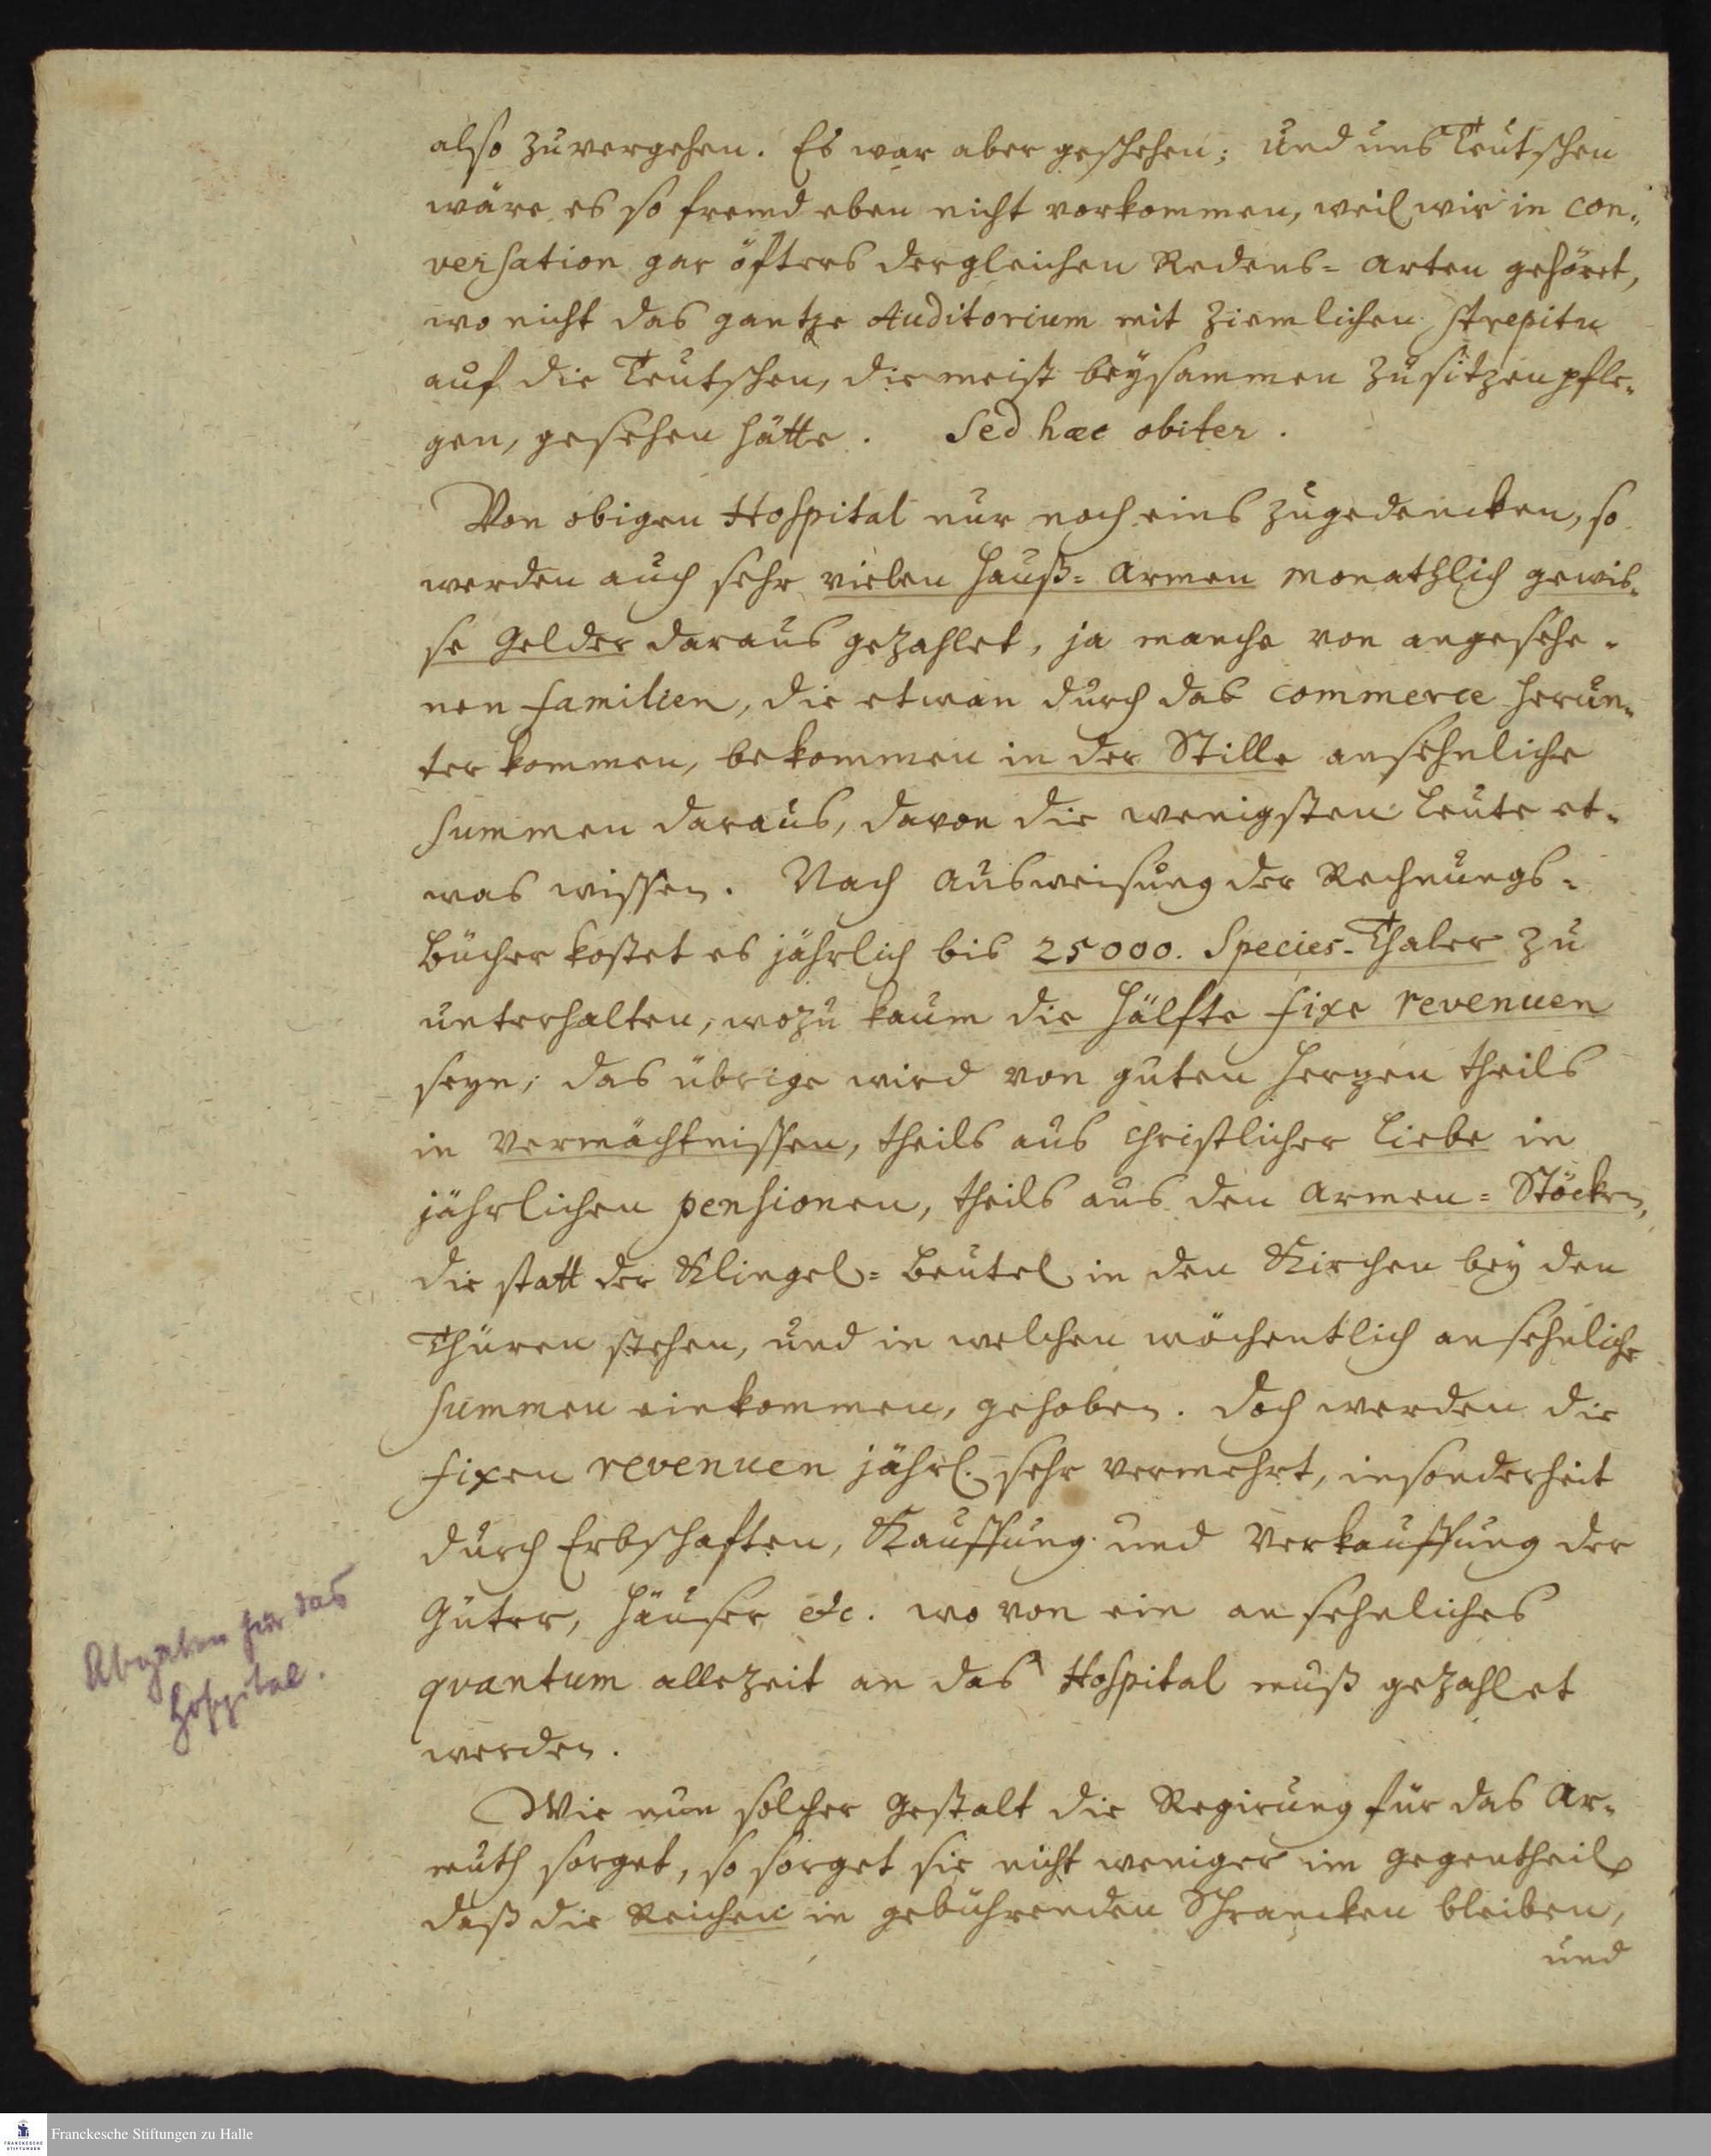 also zu vergehen. Es war aber geschehen; und uns Teutschen
wäre es so fremd eben nicht vorkommen, weil wir in con-
versation gar öfters dergleichen Redens-Arten gehöret,
wo nicht das gantze Auditorium mit ziemlichen strepitu
auf die Teutschen, die meist beysammen zu sitzen pfle-
gen, gesehen hätte. Sed haec obiter.
Von obigen Hospital nur noch eins zu gedencken, so
werden auch sehr vielen Hauß-Armen monathlich gewis-
se Gelder daraus gezahlet, ja manche von angesehe-
nen familien, die etwan durch das commerce herun-
ter kommen, bekommen in der Stille ansehnliche
Summen daraus, davon die wenigsten Leute et-
was wissen. Nach Ausweisung der Rechnungs-
Bücher kostet es jährlich bis 25000. Species-Thaler zu
unterhalten, wozu kaum die Hälfte fixe revenuen
seyn; das übrige wird von guten Herzen theils
in Vermächtnissen, theils aus christlicher Liebe in
jährlichen pensionen, theils aus den Armen-Stöcken,
die statt der Klingel-Beutel in den Kirchen bey den
Thüren stehen, und in welchen wöchentlich ansehnliche
Summen einkommen, gehoben. Doch werden die
fixen revenuen jährl. sehr vermehrt, insonderheit
durch Erbschaften, Kauffung und Verkauffung der
Güter, Häuser etc. wo von ein ansehnliches
quantum allezeit an das Hospital muß gezahlet
werden.
Abgaben für das
Hospital.
Wie nun solcher Gestalt die Regirung für das Ar-
muth sorget, so sorget sie nicht weniger im Gegentheil,
daß die Reichen in gebührenden Schrancken bleiben,
und
Franckesche Stiftungen zu Halle